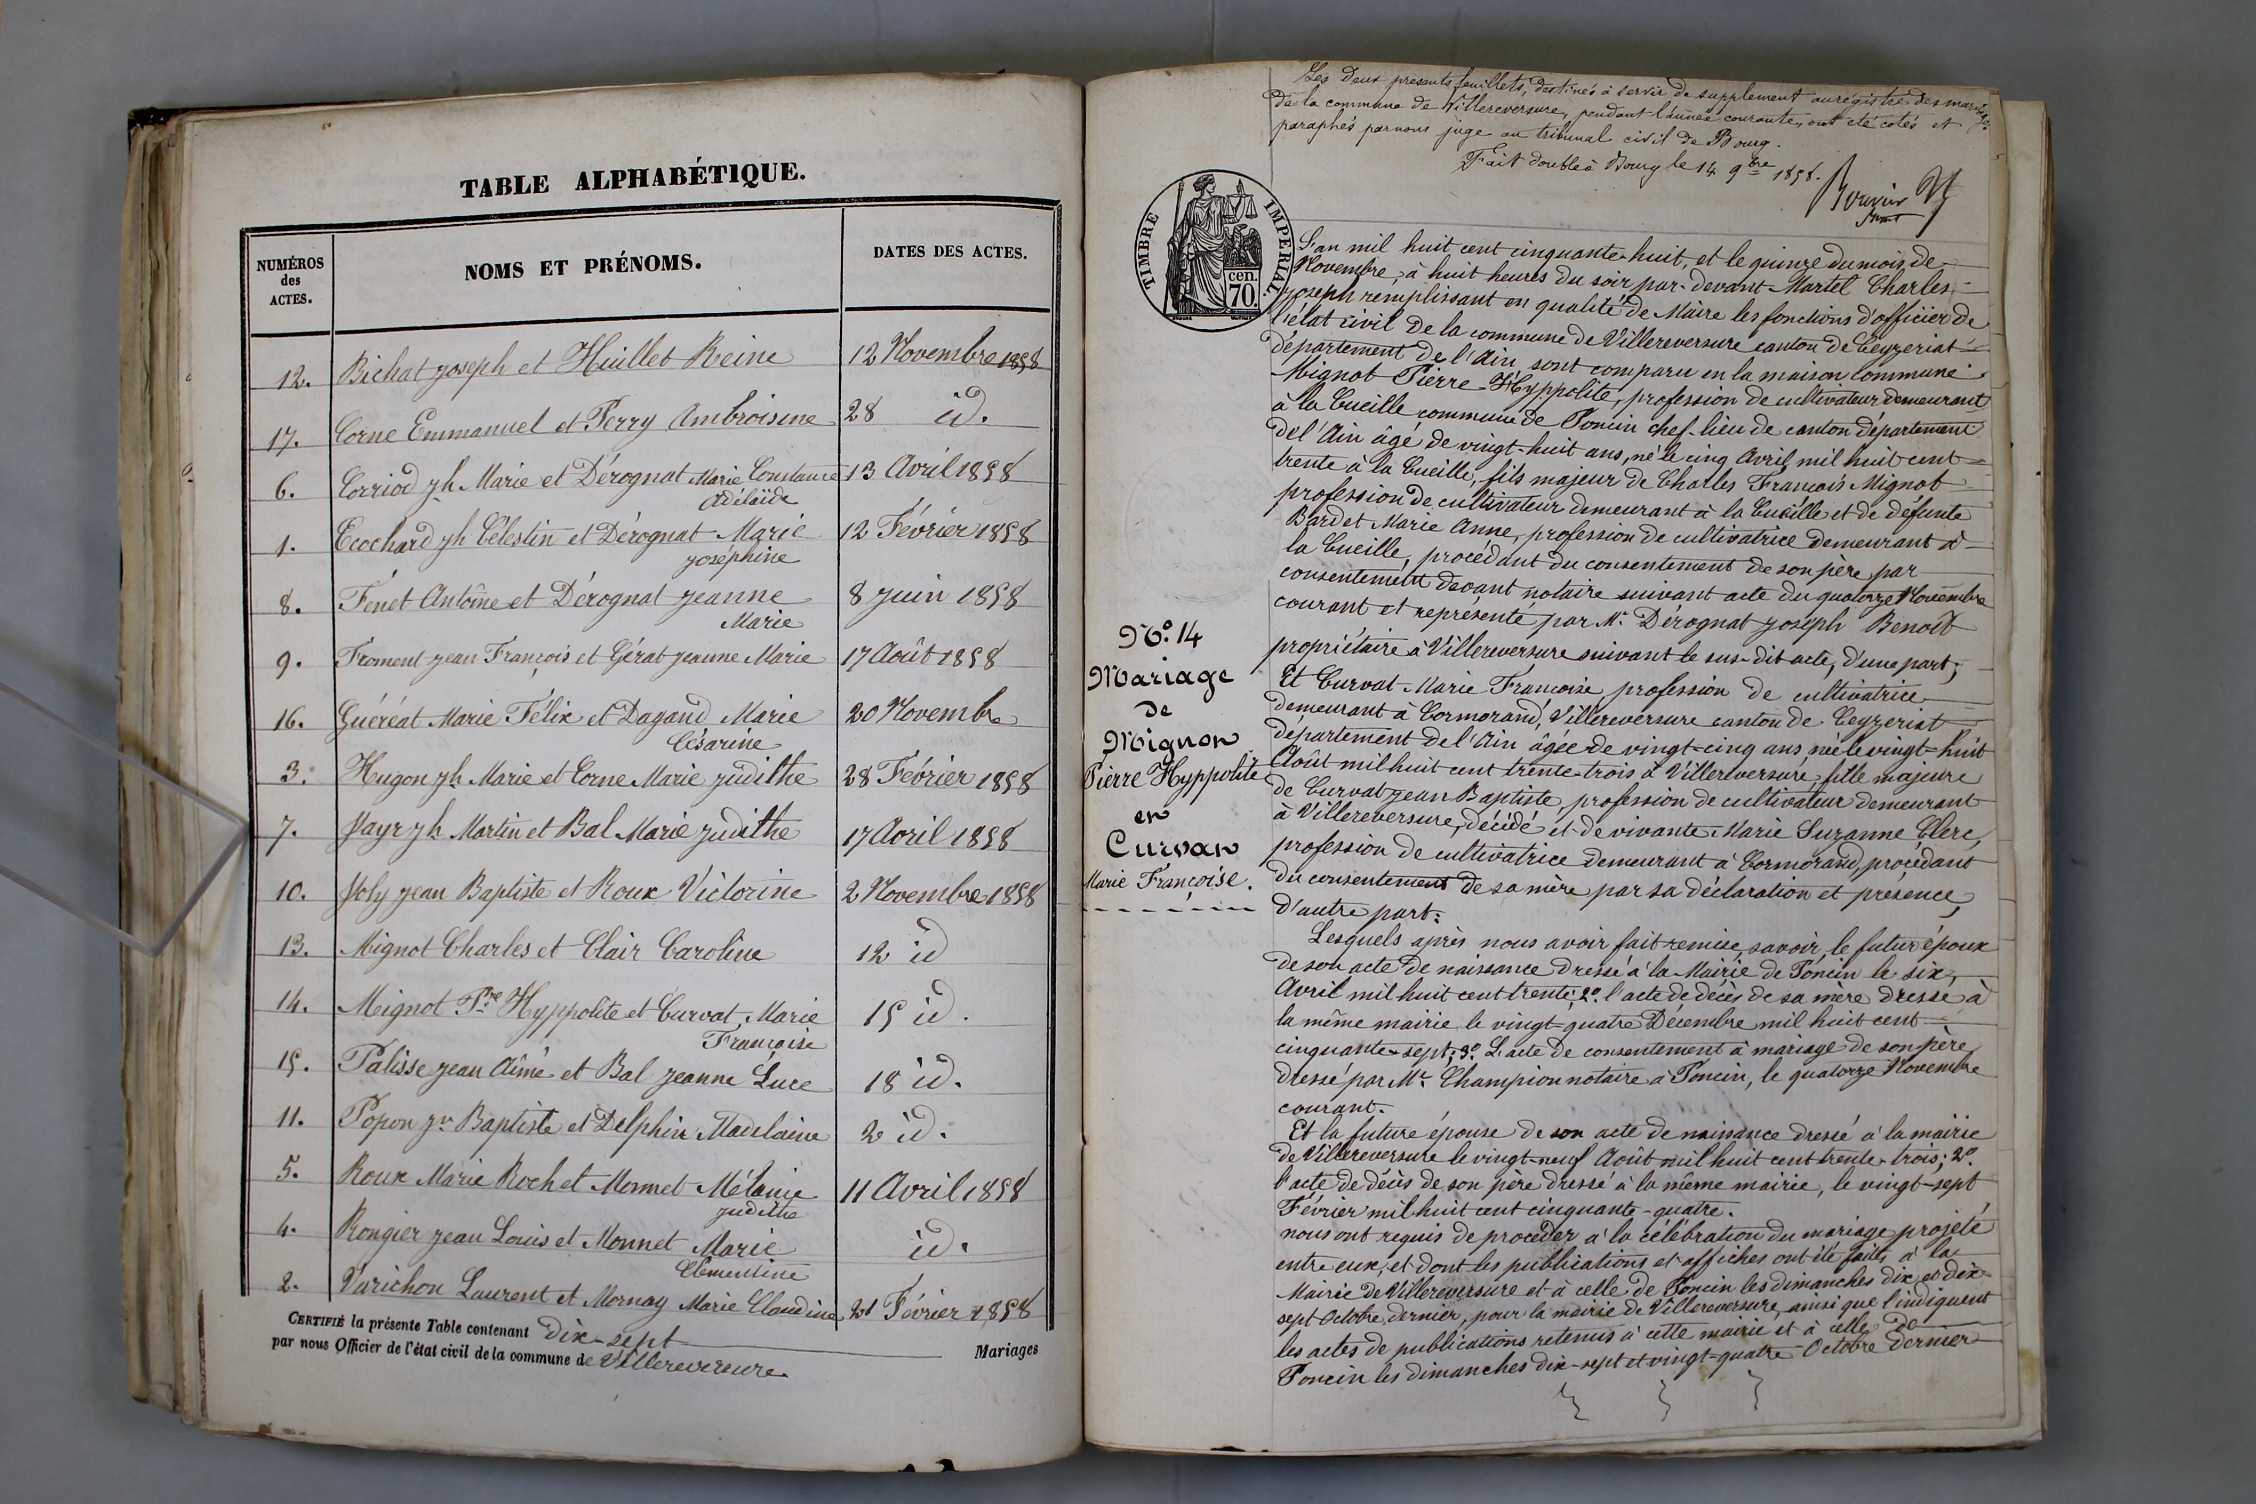 TABLE ALPHABÉTIQUE.
NUMÉROS
des
ACTES.
NOMS ET PRÉNOMS.
DATES DES ACTES.
12. Bichat Joseph et Huillet Reine 12 Novembre 1858
17. Corne Emmanuel et Ferry Ambroisine 28 id.
6. Corriod Jh. Marie et Dérognat Marie Constance 13 Avril 1858
Adélaïde
1. Ecochard Jh Célestin et Dérognat Marie 12 Février 1858
Joséphine
8. Fenet Antoine et Dérognat Jeanne 8 Juin 1858
Marie
9. Froment Jean François et Gérat Jeanne Marie 17 Août 1858
16. Guéréat Marie Félix et Dagand Marie 20 Novembre
Césarine
3. Hugon Jh. Marie et Corne Marie Judithe 28 Février 1858
7. Jayr Jh Martin et Bal Marie Judithe 17 Avril 1858
10. Joly Jean Baptiste et Roux Victorine 2 Novembre 1858
13. Mignot Charles et Clair Caroline 12 id
14. Mignot Pre Hyppolite et Curvat Marie 15 id.
Françoise
15. Palisse Jean Aimé et Bal Jeanne Luce 18 id.
11. Popon Jn Baptiste et Delphin Madelaine 2 id.
5. Roux Marie Roch et Monnet Mélanie 11 Avril 1858
Judithe
4. Rongier Jean Louis et Monnet Marie id.
Clémentine
2. Varichon Laurent et Mornay Marie Claudine 21 Février 1858
CERTIFIÉ la présente Table contenant dix-sept Mariages
par nous Officier de l'état civil de la commune de Villereversure
Les deux présents feuillets, destinés à servir de supplément au régistre des mariages
de la commune de Villereversure, pendant l'année courante, ont été cotés et
paraphés par nous juge au tribunal civil de Bourg.
Fait double à Bourg le 14 9bre 1858.
TIMBRE IMPERIAL.
cen.
70.
L'an mil huit cent cinquante-huit, et le quinze du mois de
Novembre, à huit heures du soir par-devant Martel Charles
Joseph remplissant en qualité de Maire les fonctions d'officier de
l'état civil de la commune de Villereversure canton de Ceyzeriat
département de l'Ain, sont comparu en la maison commune
Mignot Pierre-Hyppolite, profession de cultivateur demeurant
à la Cueille commune de Poncin chef-lieu de canton département
de l'Ain âgé de vingt-huit ans, né le cinq Avril mil huit cent
trente à la Cueille, fils majeur de Charles François Mignot
profession de cultivateur demeurant à la Cueille et de défunte
Bardet Marie Anne, profession de cultivatrice demeurant à
la Cueille, procédant du consentement de son père par
consentement devant notaire suivant acte du quatorze Novembre
courant et représenté par Mr. Dérognat Joseph Benoît
propriétaire à Villereversure suivant le sus-dit acte, d'une part;
Et Curvat Marie Françoise, profession de cultivatrice
demeurant à Cormorand, Villereversure canton de Ceyzeriat
département de l'Ain âgée de vingt-cinq ans, née le vingt-huit
Août mil huit cent trente-trois à Villereversure, fille majeure
de Curvat Jean Baptiste, profession de cultivateur demeurant
à Villereversure, décidé et de vivante Marie Suzanne Clerc,
profession de cultivatrice demeurant à Cormorand, procédant
du consentement de sa mère par sa déclaration et présence,
d'autre part:
No. 14
Mariage
de
Mignon
Pierre Hyppolite
en
Curvan
Marie Françoise.
Lesquels après nous avoir fait remise, savoir, le futur époux
de son acte de naissance dressé à la Mairie de Poncin le six
Avril mil huit cent trente; 2o. l'acte de décès de sa mère dressé à
la même mairie le vingt-quatre Décembre mil huit cent
cinquante-sept; 3o. L'acte de consentement à mariage de son père
dressé par Mr. Champion notaire à Poncin, le quatorze Novembre
courant.
Et la future épouse de son acte de naissance dressé à la mairie
de Villereversure le vingt-neuf Août mil huit cent trente-trois; 2o.
l'acte de décès de son père dressé à la même mairie, le vingt-sept
Février mil huit cent cinquante-quatre.
nous ont requis de procéder à la célébration du mariage projeté
entre eux, et dont les publications et affiches ont été faites à la
Mairie de Villereversure et à celle de Poncin les dimanches dix et dix-
sept Octobre dernier, pour la mairie de Villereversure, ainsi que l'indiquent
les actes de publications retenus à cette mairie et à celle de
Poncin les dimanches dix-sept et vingt-quatre Octobre dernier